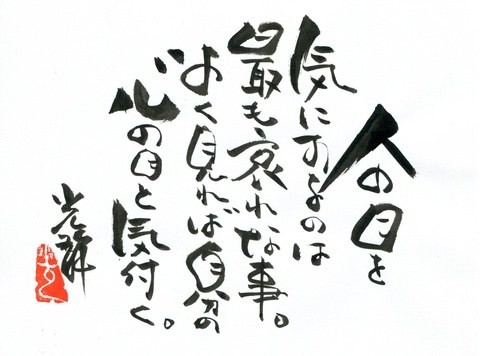 人の目を
気におるのは
最も哀れな事。
よく見れば自分の
心の目と気付く。